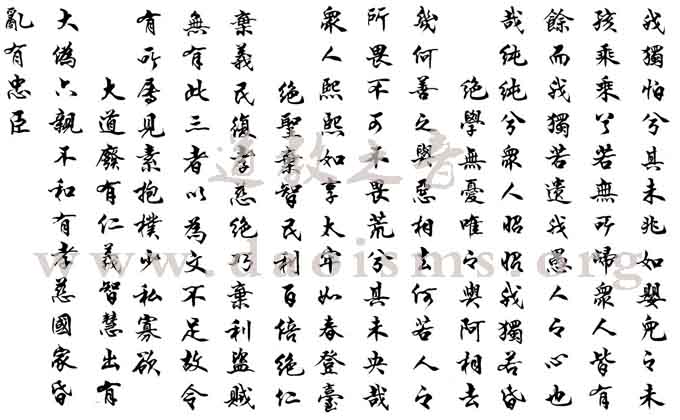 我獨怕兮其未兆如嬰兒之未
孩乘乘兮若無所歸眾人皆有
餘而我獨若遺我愚人之心也
哉純純兮眾人昭昭我獨若昏
絕學無憂唯之與阿相去
幾何善之與惡相去何若人之
所畏不可不畏荒兮其未央哉
眾人熙熙如享太牢如春登臺
絕聖棄智民利百倍絕仁
棄義民復孝慈絕巧棄利盜賊
無有此三者以為文不足故令
有所屬見素抱樸少私寡欲
大道廢有仁義智慧出有
大偽六親不和有孝慈國家昏
亂有忠臣
道教之音
www.daoisms.org